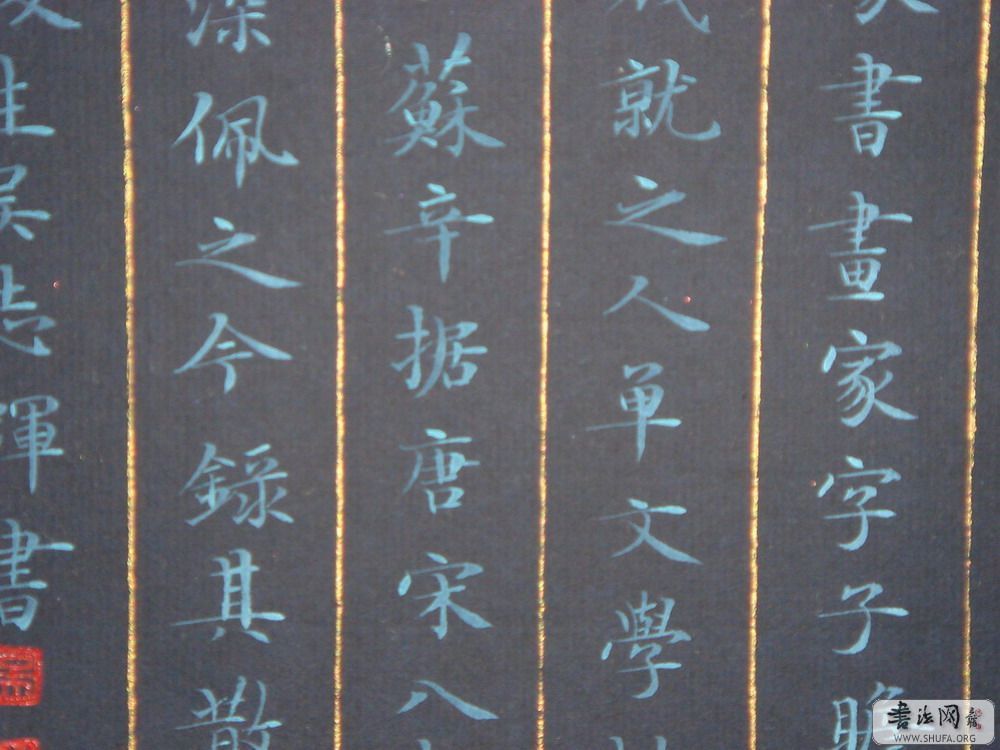 書畫家字子
就之人单文學
蘇辛据唐宋八
深佩之今錄其散
生吴志渾書
書法网
WWW.SHUFA.ORG